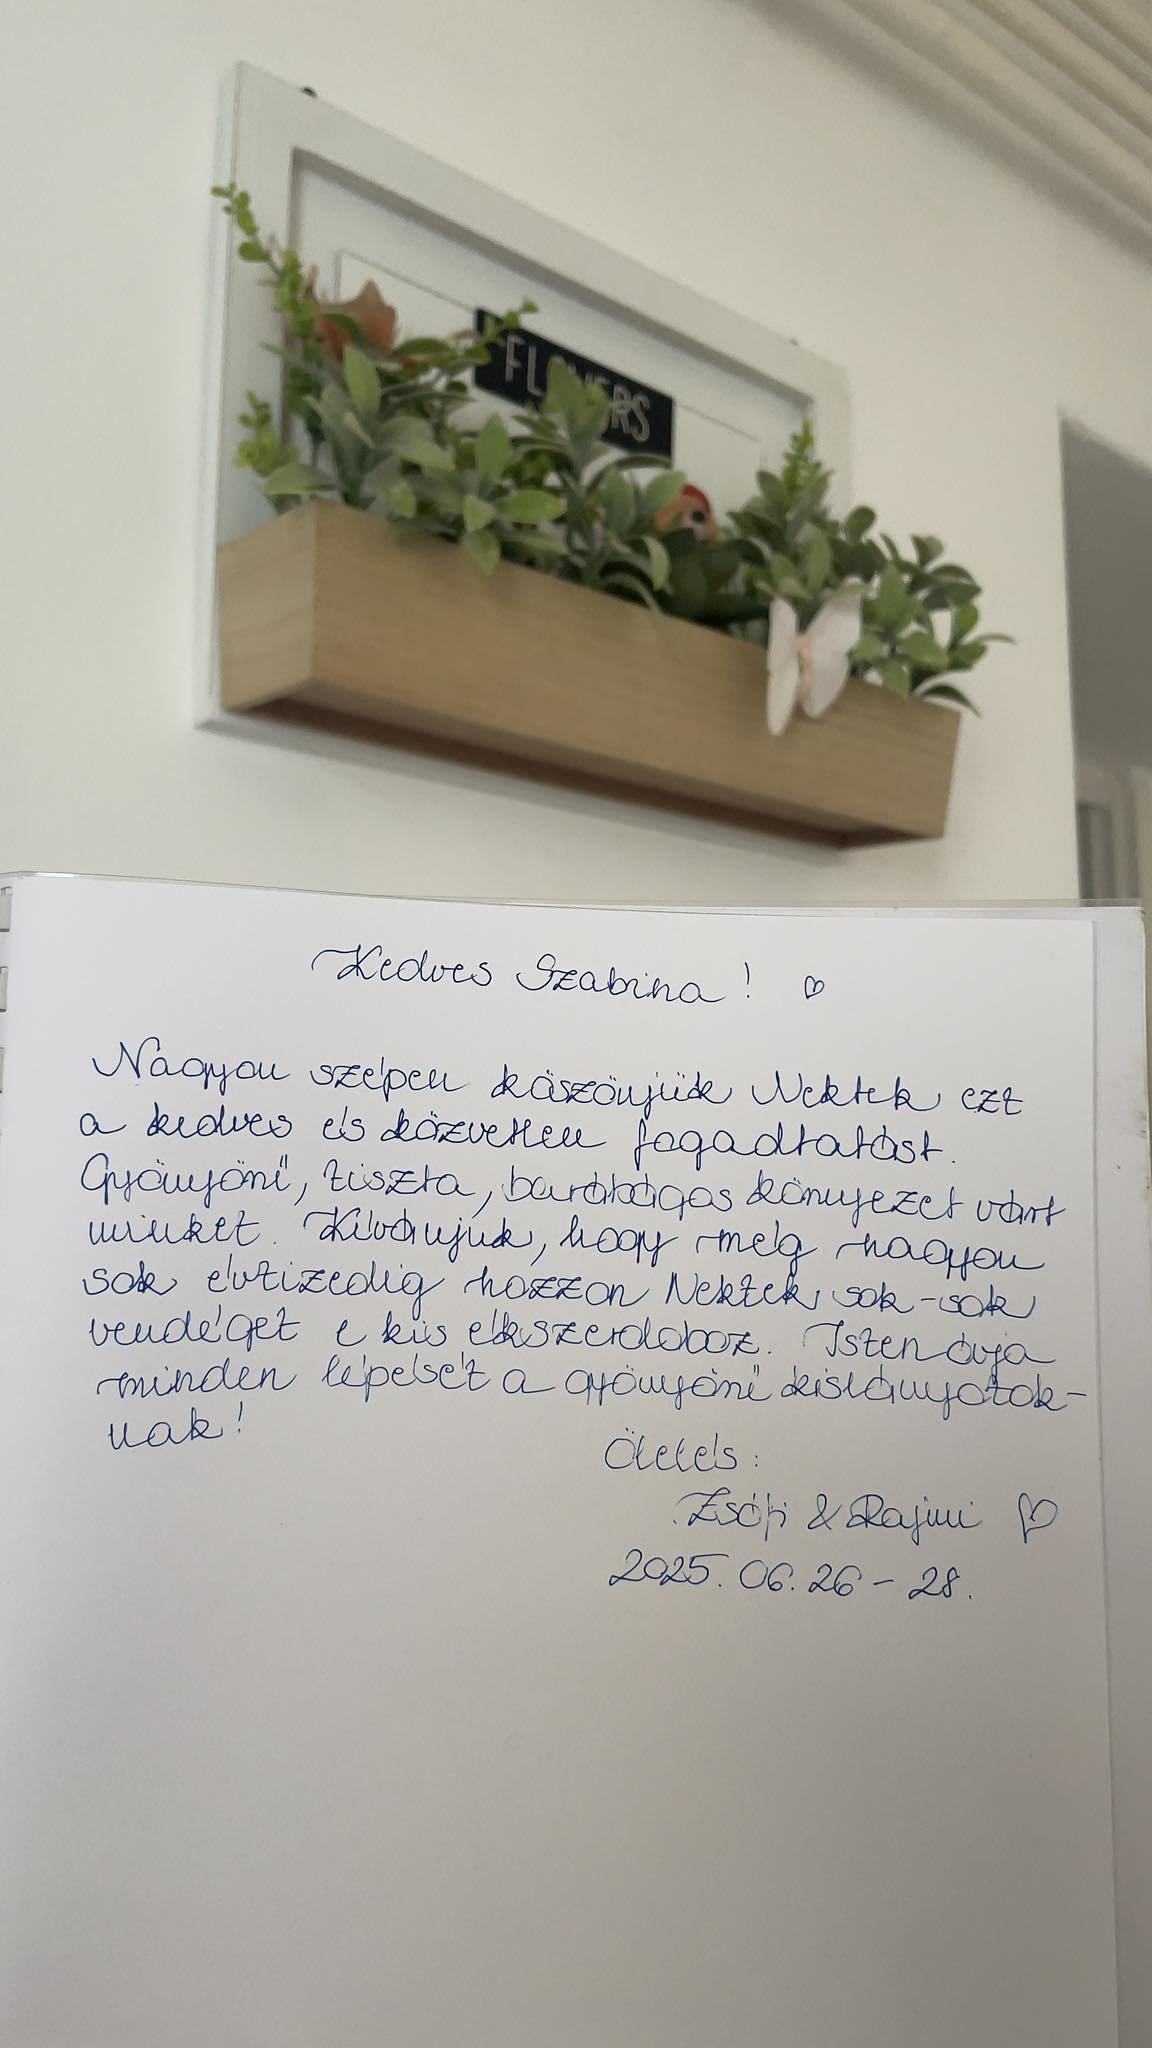 FLOWERS
Kedves Szabina! ♡
Nagyon szépen köszönjük Nektek ezt
a kedves és közvetlen fogadtatást.
Gyönyörű, tiszta, barátságos környezet várt
minket. Kívánjuk, hogy még nagyon
sok évtizedig hozzon Nektek sok-sok
vendéget e kis ékszerdoboz. Isten óvja
minden lépését a gyönyörű kislányotok-
nak!
Ölelés:
Zsófi & Rajmi ♡
2025. 06. 26 - 28.